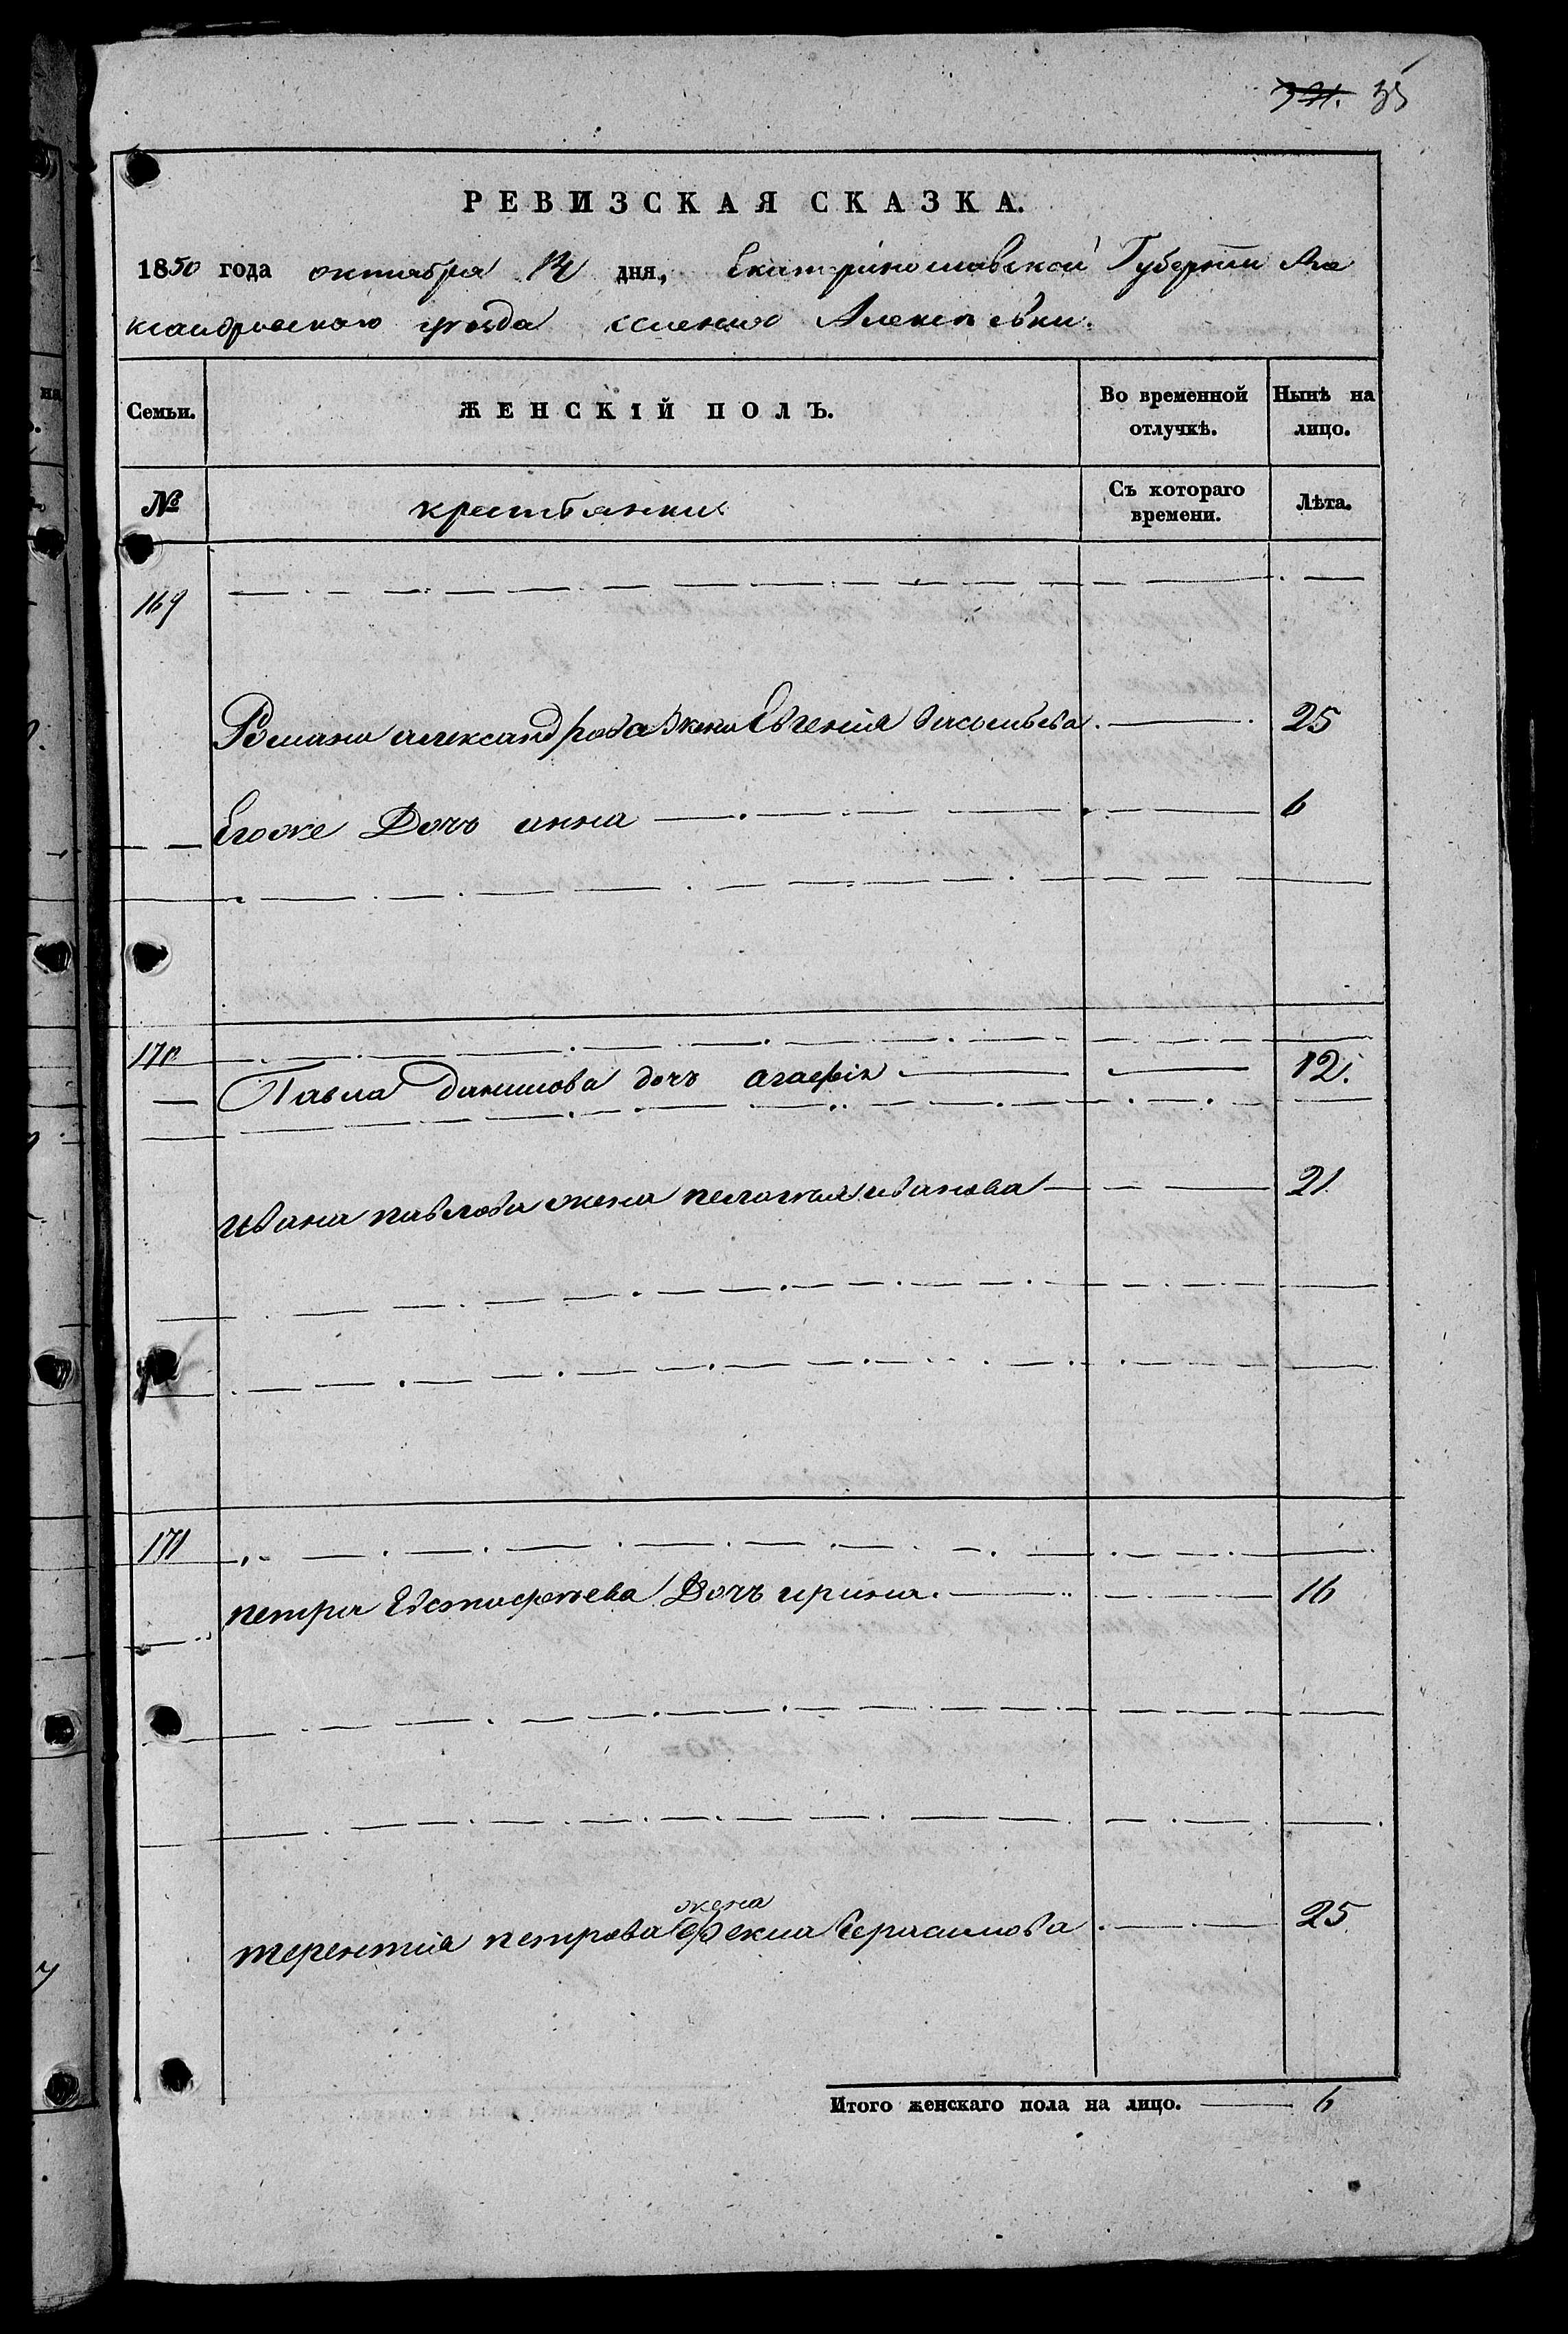 35
РЕВИЗСКАЯ СКАЗКА.
1850 года октября дня, Екатериславской Губернии Але
ксандровского уезда селения Алексеевки.
Семьи.
ЖЕНСКІЙ ПОЛЪ.
Во временной отлучкѣ.
Нынѣ на лицо.
№
крестьянки
Съ котораго времени.
Лѣта.
169
Романа александрова жена Евгения васильева 25
Егоже Дочь анна 6
170
Павла данилова дочь агафія 12.
ивана павлова жена пелагия иванова 21
171
петра Евстафьева Дочь ирина 16
жена
терентия петрова Герасимова 25
Итого женскаго пола на лицо. 6